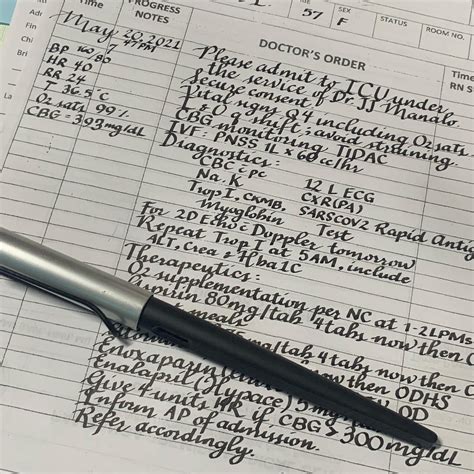 PROGRESS NOTES
57
SEX
F
STATUS
ROOM NO.
DOCTOR'S ORDER
Time
RN S
May 20, 2021
7:47PM
BP 160/80
HR 40
RR 24
T 36.5°C
O2 sats 99%
CBG = 393mg/dL
Please admit to ICU under
the service of Dr. JJ Manalo.
Secure consent
Vital signs q4 including O2 sats
I & O q shift; avoid straining.
CBG monitoring TIDAC
IVF: PNSS 1L x 60cc/hr
Diagnostics:
CBC c pc
Na, K
Trop I, CKMB,
Myoglobin
12 L ECG
CXR(PA)
SARSCOV2 Rapid Antig
Test
For 2D Echo c Doppler tomorrow
Repeat Trop I at 5AM, include
ALT, crea & Hba1c
Therapeutics:
O2 supplementation per NC at 1-2LPMs
Aspirin 80mg/tab 4tabs now then
meals
mg/tab 4tabs now then
now then ODHS
Enoxaparin
OD
Enalapril (Hypace) 5mg
Give 4 units HR if CBG > 300mg/dL
Inform AP of admission.
Refer accordingly.